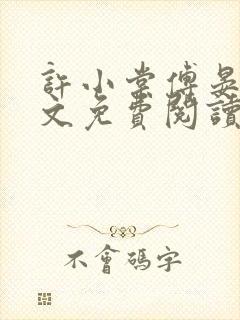 許小棠傅晏
文免費閱讀
不會碼字